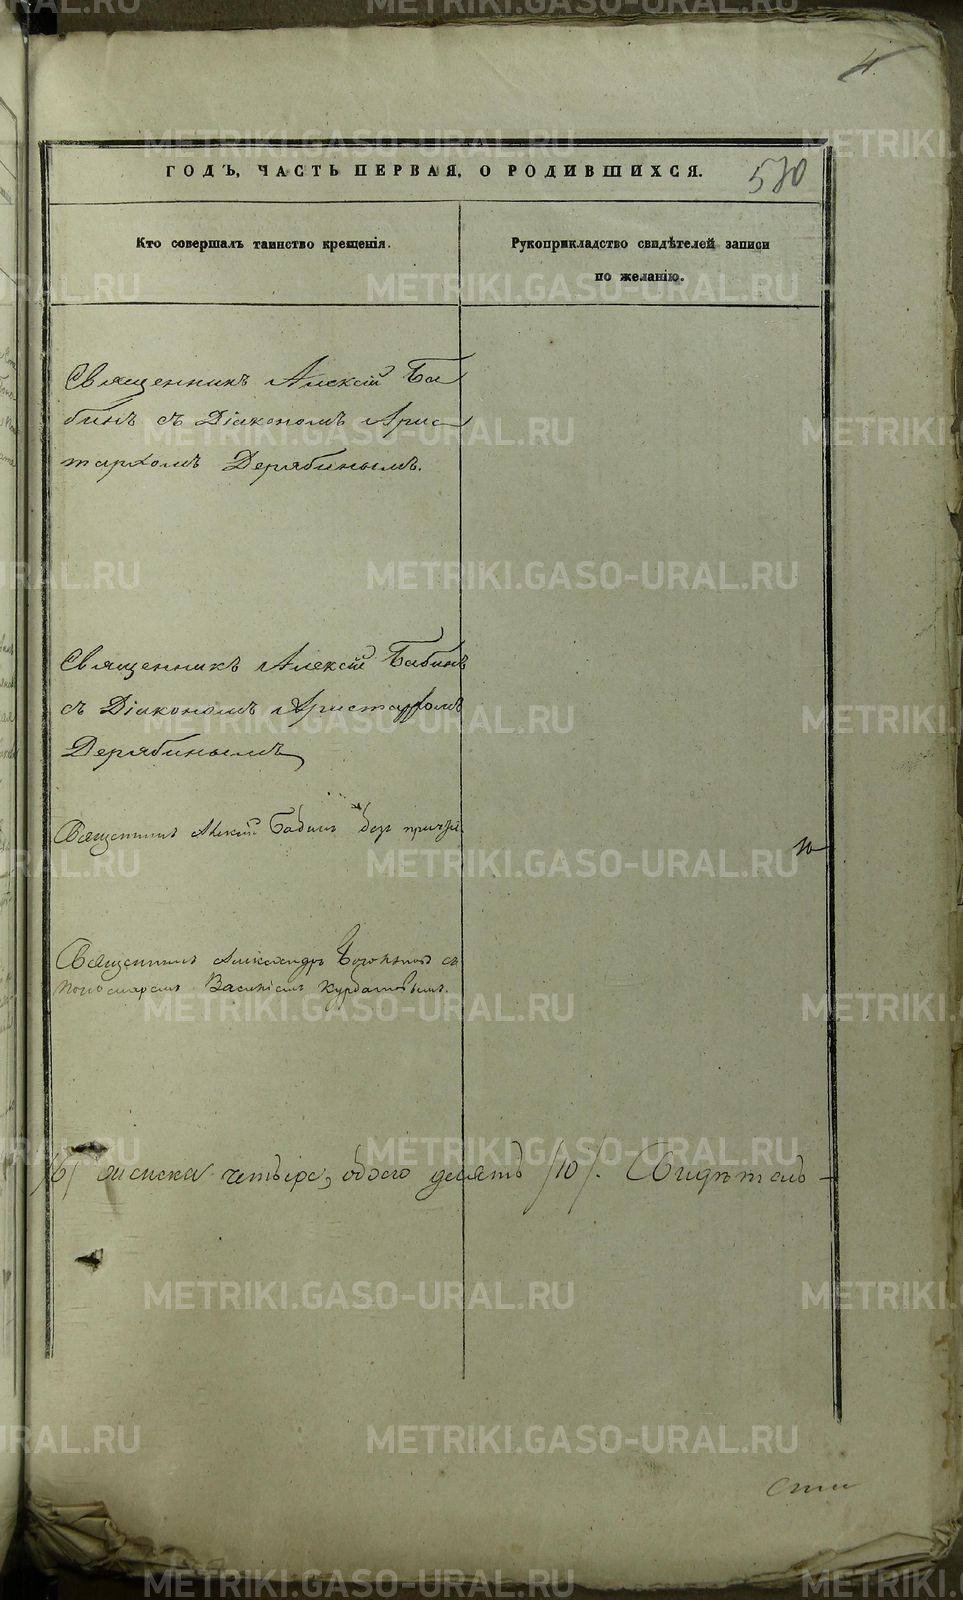 4
ГОДЪ, ЧАСТЬ ПЕРВАЯ, О РОДИВШИХСЯ.
570
Кто совершалъ таинство крещенія.
Рукоприкладство свидѣтелей записи
по желанію.
Священникъ Алексій Ба
бинъ съ Діакономъ Арис
тархомъ Дерябинымъ.
Священникъ Алексій Бабинъ
съ Діакономъ Аристархомъ
Дерябинымъ
Священникъ Алексій Бабинъ безъ причта
Священникъ Александръ съ
пономаремъ Василіемъ Курбатовымъ.
/6/ женска четыре, обоего десять /10/. Свидѣтель-
METRIKI.GASO-URAL.RU